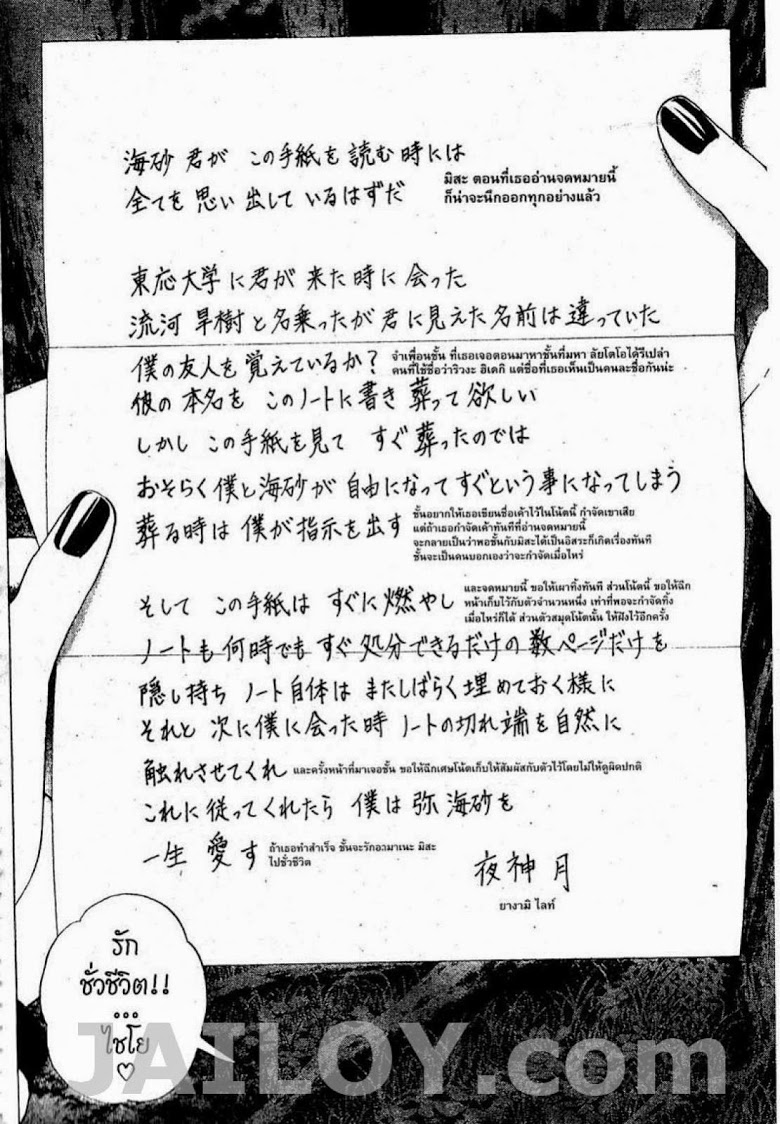 海砂 君が この手紙を読む時には
全てを思い出しているはずだ
มิสะ ตอนที่เธออ่านจดหมายนี้
ก็น่าจะนึกออกทุกอย่างแล้ว
東応大学に君が来た時に会った
流河旱樹と名乗ったが君に見えた名前は違っていた
僕の友人を覚えているか?
จำเพื่อนชั้น ที่เธอเจอตอนมาหาชั้นที่มหา ลัยโตโอได้รึเปล่า
คนที่ใช้ชื่อว่าริวงะ ฮิเดกิ แต่ชื่อที่เธอเห็นเป็นคนละชื่อกันน่ะ
彼の本名を このノートに書き葬って欲しい
しかし この手紙を見て すぐ葬ったのでは
おそらく僕と海砂が自由になってすぐという事になってしまう
葬る時は僕が指示を出す
ชั้นอยากให้เธอเขียนชื่อเค้าไว้ในโน้ตนี้ กำจัดเขาเสีย
แต่ถ้าเธอกำจัดเค้าทันทีที่อ่านจดหมายนี้
จะกลายเป็นว่าพอชั้นกับมิสะได้เป็นอิสระก็เกิดเรื่องทันที
ชั้นจะเป็นคนบอกเองว่าจะกำจัดเมื่อไหร่
そして この手紙は すぐに燃やし
และจดหมายนี้ ขอให้เผาทิ้งทันที ส่วนโน้ตนี้ ขอให้ฉีก
หน้าเก็บไว้กับตัวจำนวนหนึ่ง เท่าที่พอจะกำจัดทิ้ง
เมื่อไหร่ก็ได้ ส่วนตัวสมุดโน้ตนั้น ให้ฝังไว้อีกครั้ง
ノートも何時でもすぐ処分できるだけの数ページだけを
隠し持ち ノート自体は またしばらく埋めておく様に
それと 次に僕に会った時 ノートの切れ端を自然に
触れさせてくれ
และครั้งหน้าที่มาเจอชั้น ขอให้ฉีกเศษโน้ตเก็บให้สัมผัสกับตัวไว้โดยไม่ให้ดูผิดปกติ
これに従ってくれたら 僕は 弥 海砂を
一生 愛す
ถ้าเธอทำสำเร็จ ชั้นจะรักอามาเนะ มิสะ
ไปชั่วชีวิต
夜神 月
ยางามิ ไลท์
รัก
ชั่วชีวิต!!
...
ไชโย
♡
JAILOY.com